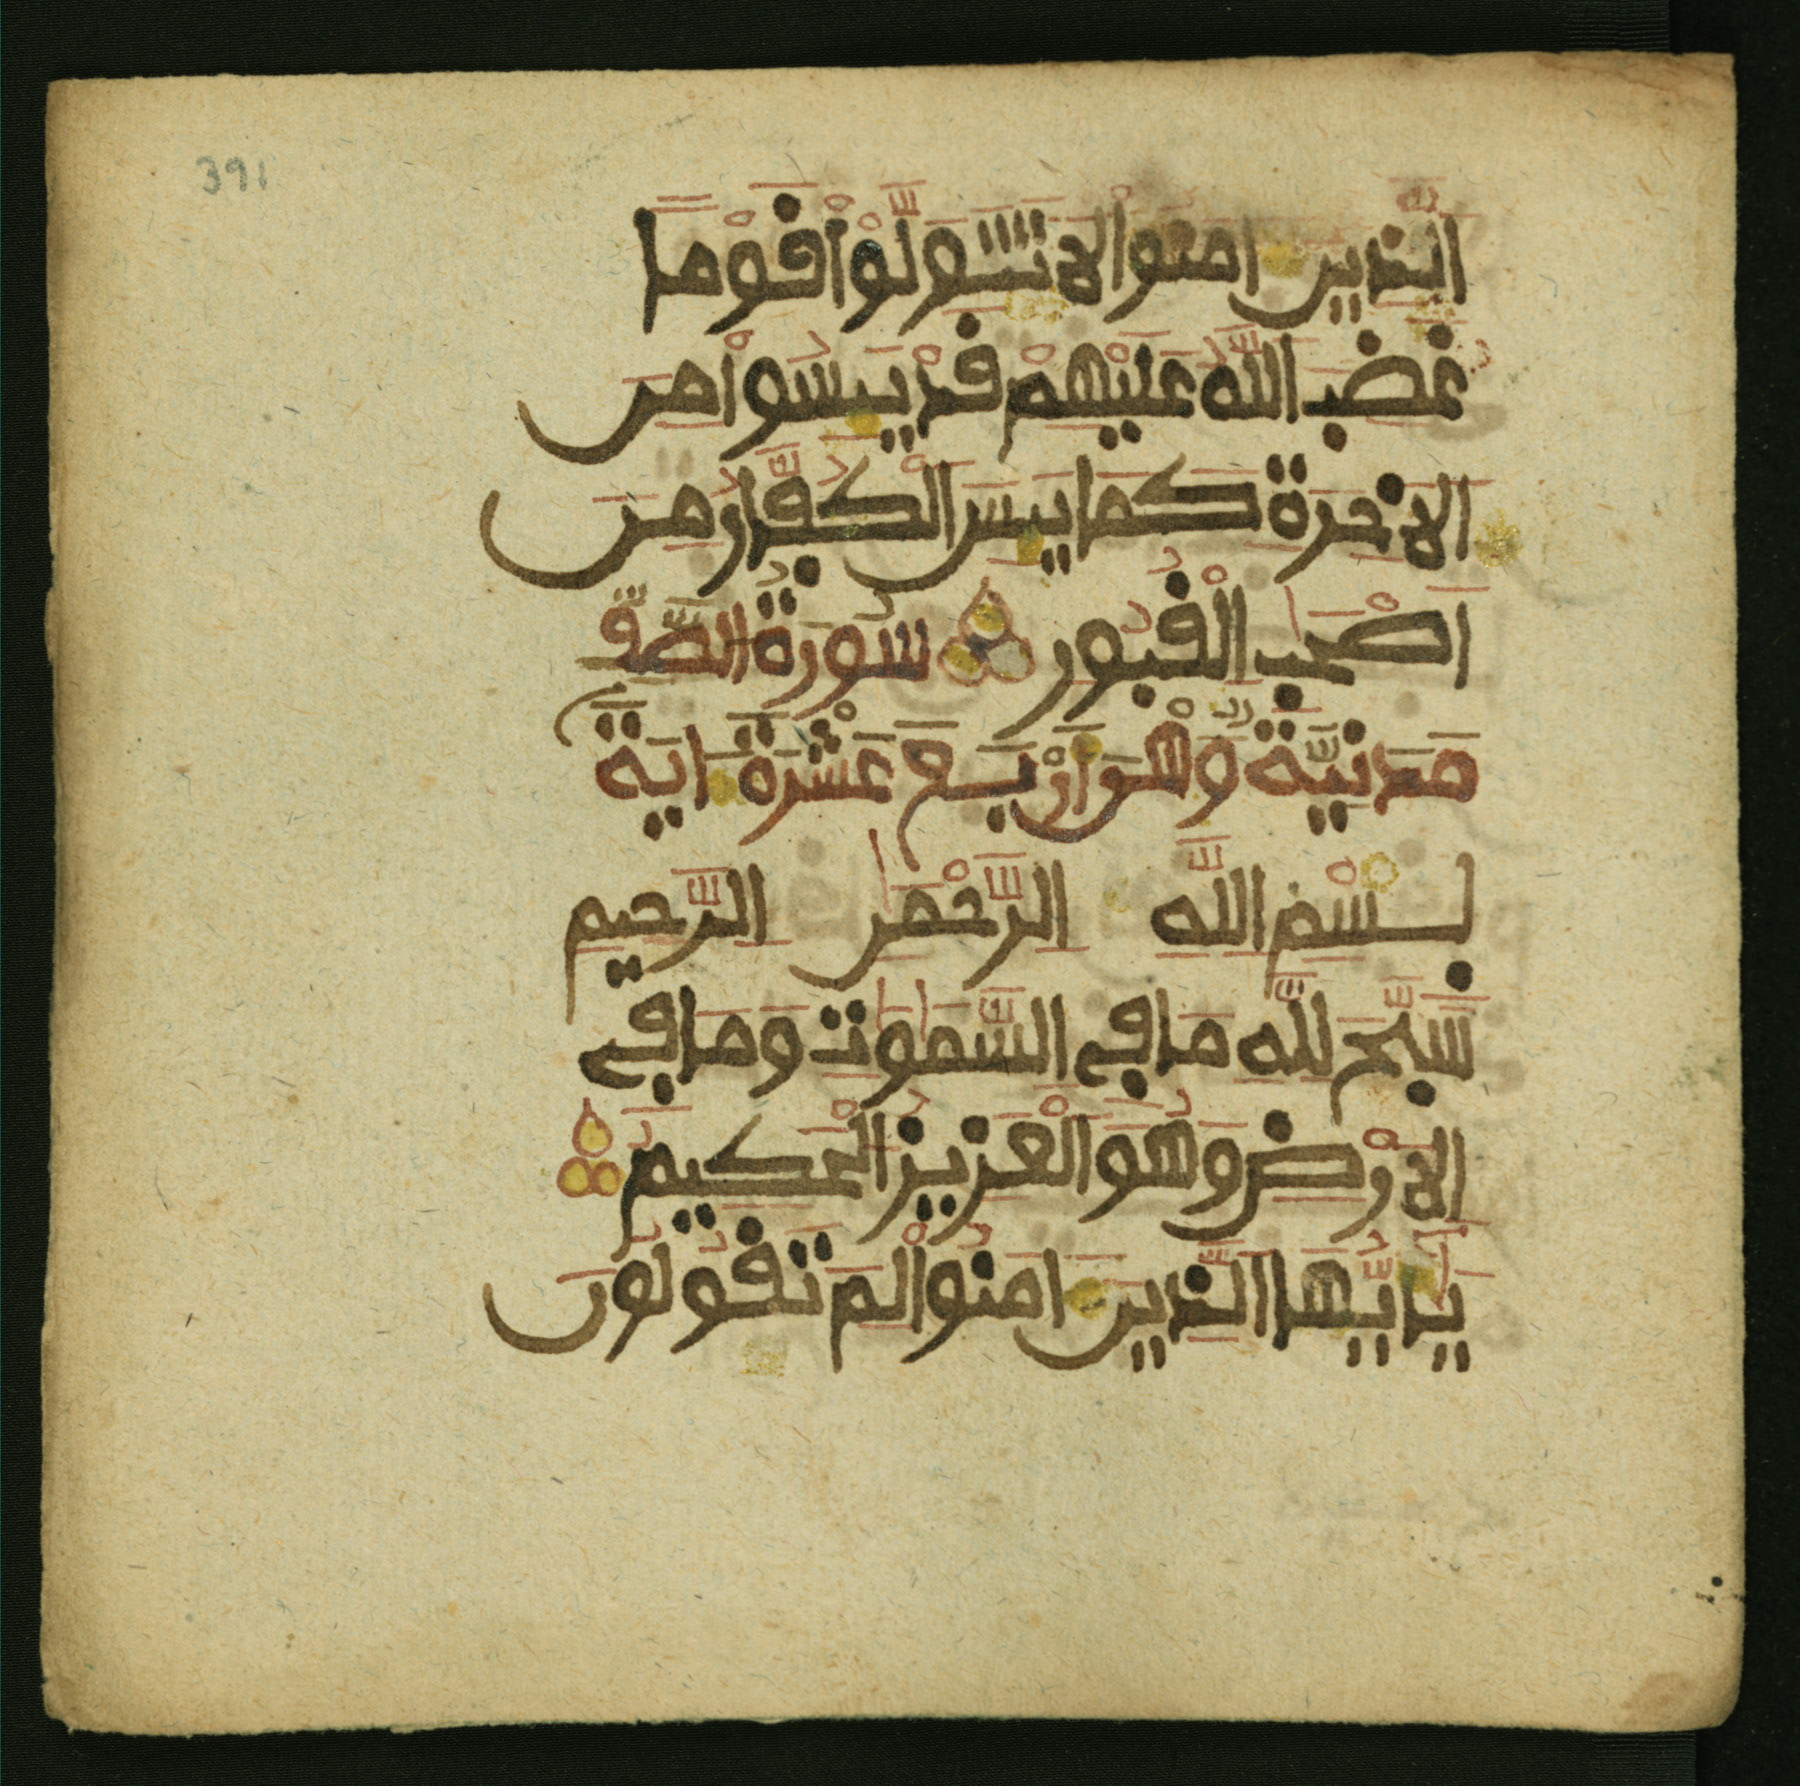 391
الَّذِينَ ءَامَنُوا لَا تَتَوَلَّوْا قَوْمًا
غَضِبَ اللَّهُ عَلَيْهِمْ قَدْ يَئِسُوا مِنَ
الْأَخِرَةِ كَمَا يَئِسَ الْكُفَّارُ مِنَ
أَصْحَٰبِ الْقُبُورِ سُورَةُ الصَّفِّ
مَدَنِيَّةٌ وَهُوَ أَرْبَعَ عَشْرَةَ ءَايَةً
بِسْمِ اللَّهِ الرَّحْمَٰنِ الرَّحِيمِ
سَبَّحَ لِلَّهِ مَا فِي السَّمَٰوَٰتِ وَمَا فِي
الْأَرْضِ وَهُوَ الْعَزِيزُ الْحَكِيمُ
يَٰأَيُّهَا الَّذِينَ ءَامَنُوا لِمَ تَقُولُونَ